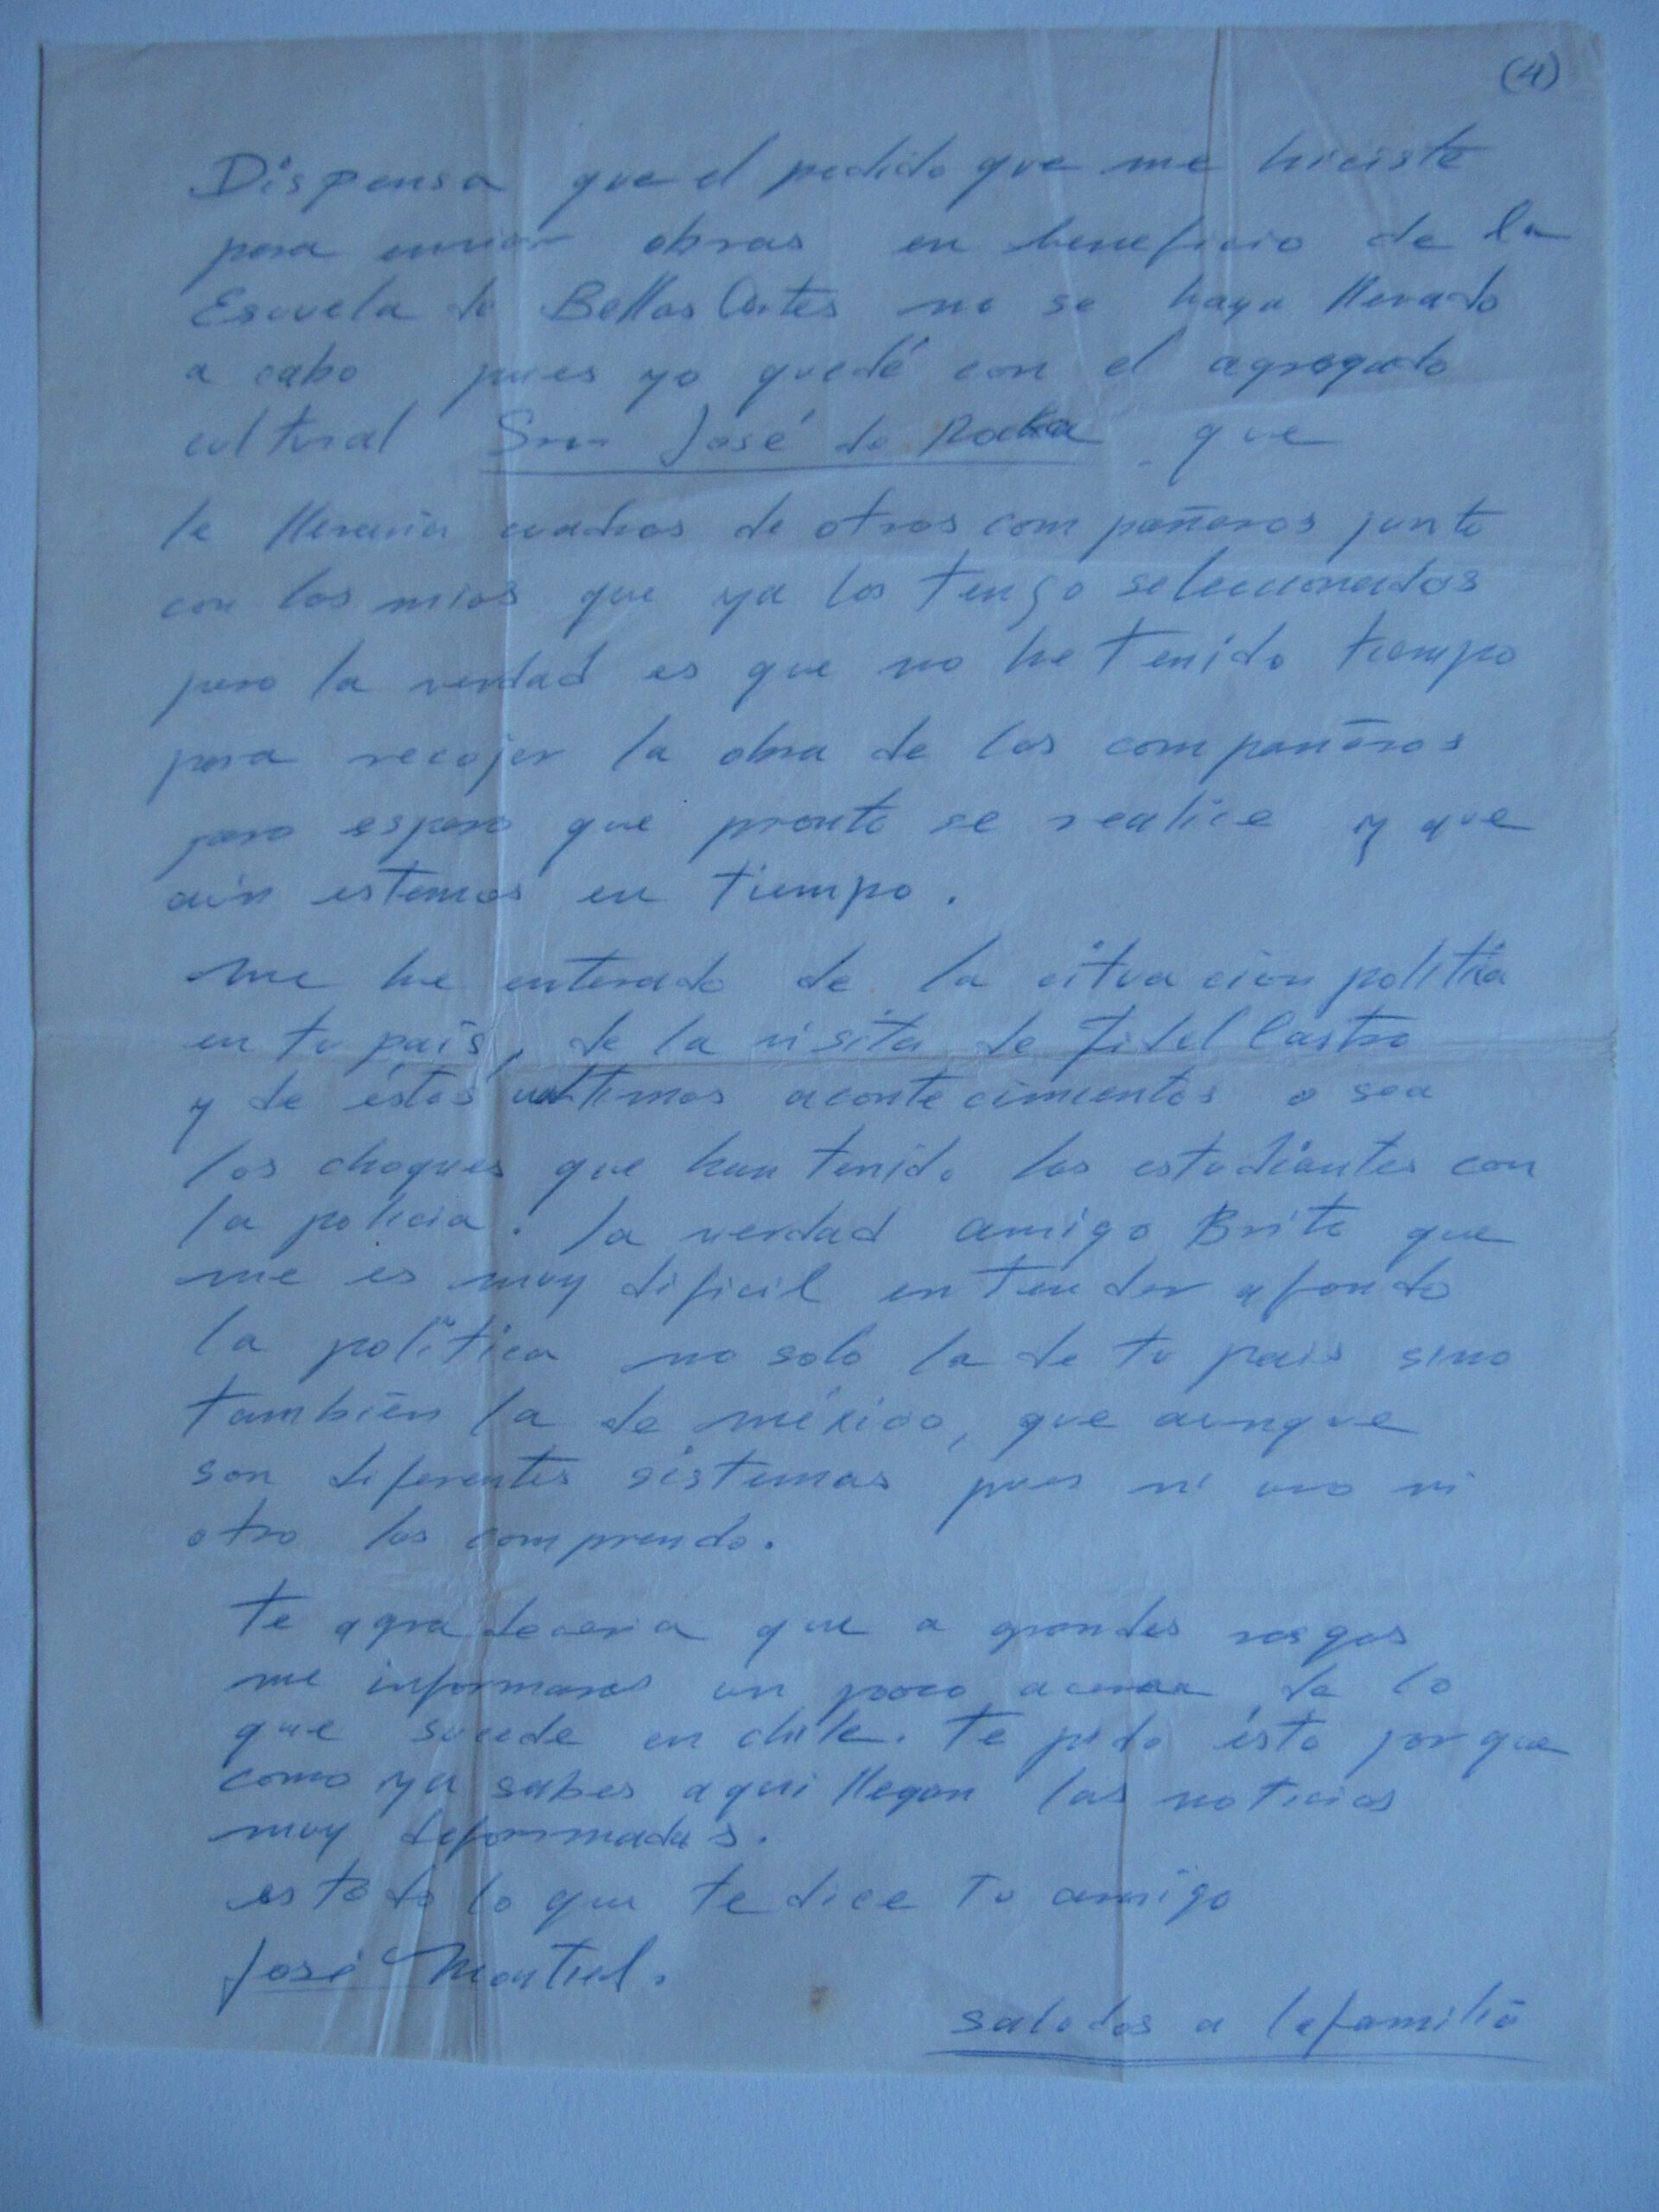 (4)
Dispensa que el pedido que me hiciste
para enviar obras en beneficio de la
Escuela de Bellas Artes no se haya llevado
a cabo pues yo quedé con el agregado
cultural Srn José de Rokha que
le llevaria cuadros de otros compañeros junto
con los mios que ya los tengo seleccionados
pero la verdad es que no he tenido tiempo
para recojer la obra de los compañeros
pero espero que pronto se realice y que
aún estemos en tiempo.
me he enterado de la cituación política
en tu país, de la visita de Fidel Castro
y de éstos ultimos acontecimientos o sea
los choques que han tenido los estudiantes con
la policia. la verdad amigo Brito que
me es muy dificil entender a fondo
la política no solo la de tu pais sino
también la de méxico, que aunque
son diferentes sistemas pues ni uno ni
otro los comprendo.
te agradeceria que a grandes rasgos
me informaras un poco acerca de lo
que sucede en chile. te pido ésto porque
como ya sabes aqui llegan las noticias
muy deformadas.
es todo lo que te dice tu amigo
José Montiel.
saludos a la familia